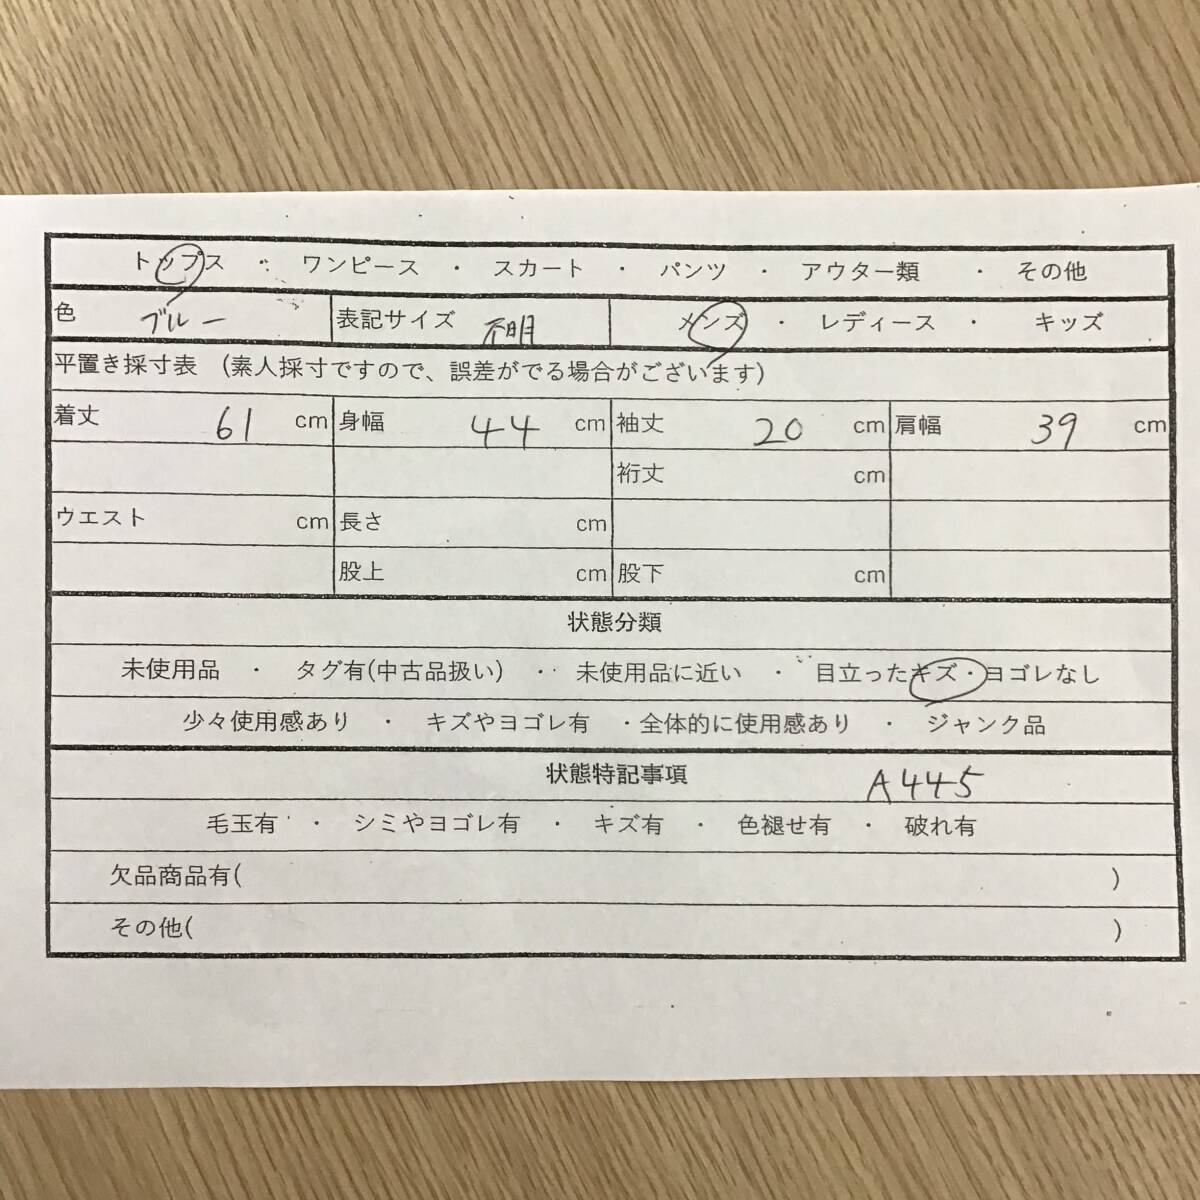 トップス ・ ワンピース ・ スカート ・ パンツ ・ アウター類 ・ その他
色 ブルー 表記サイズ 不明 メンズ ・ レディース ・ キッズ
平置き採寸表 (素人採寸ですので、誤差がでる場合がございます)
着丈 61 cm 身幅 44 cm 袖丈 20 cm 肩幅 39 cm
裄丈 cm
ウエスト cm 長さ cm
股上 cm 股下 cm
状態分類
未使用品 ・ タグ有(中古品扱い) ・ 未使用品に近い ・ 目立ったキズ・ヨゴレなし
少々使用感あり ・ キズやヨゴレ有 ・全体的に使用感あり ・ ジャンク品
状態特記事項 A445
毛玉有 ・ シミやヨゴレ有 ・ キズ有 ・ 色褪せ有 ・ 破れ有
欠品商品有( )
その他( )